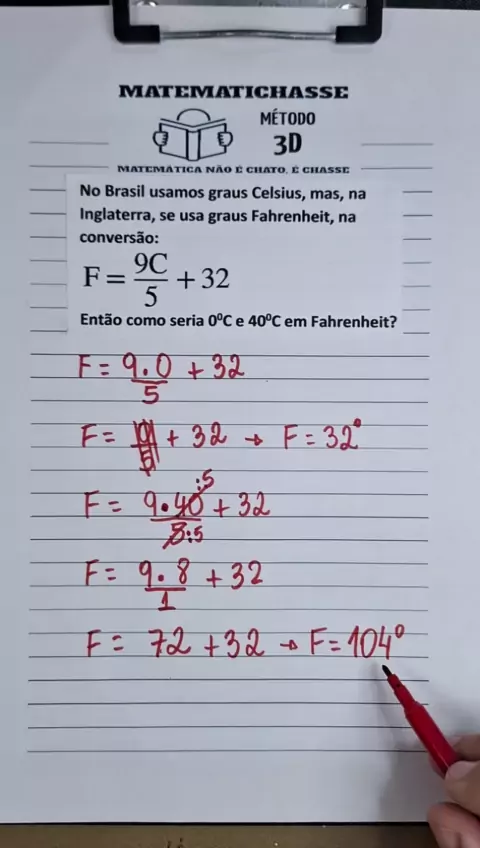 MATEMATICHASSE
MÉTODO
3D
MATEMÁTICA NÃO É CHATO, É CHASSE
No Brasil usamos graus Celsius, mas, na
Inglaterra, se usa graus Fahrenheit, na
conversão:
F = 9C/5 + 32
Então como seria 0⁰C e 40⁰C em Fahrenheit?
F = 9.0/5 + 32
F = 0/5 + 32 → F = 32°
F = 9.40:5/5:5 + 32
F = 9.8/1 + 32
F = 72 + 32 → F = 104°